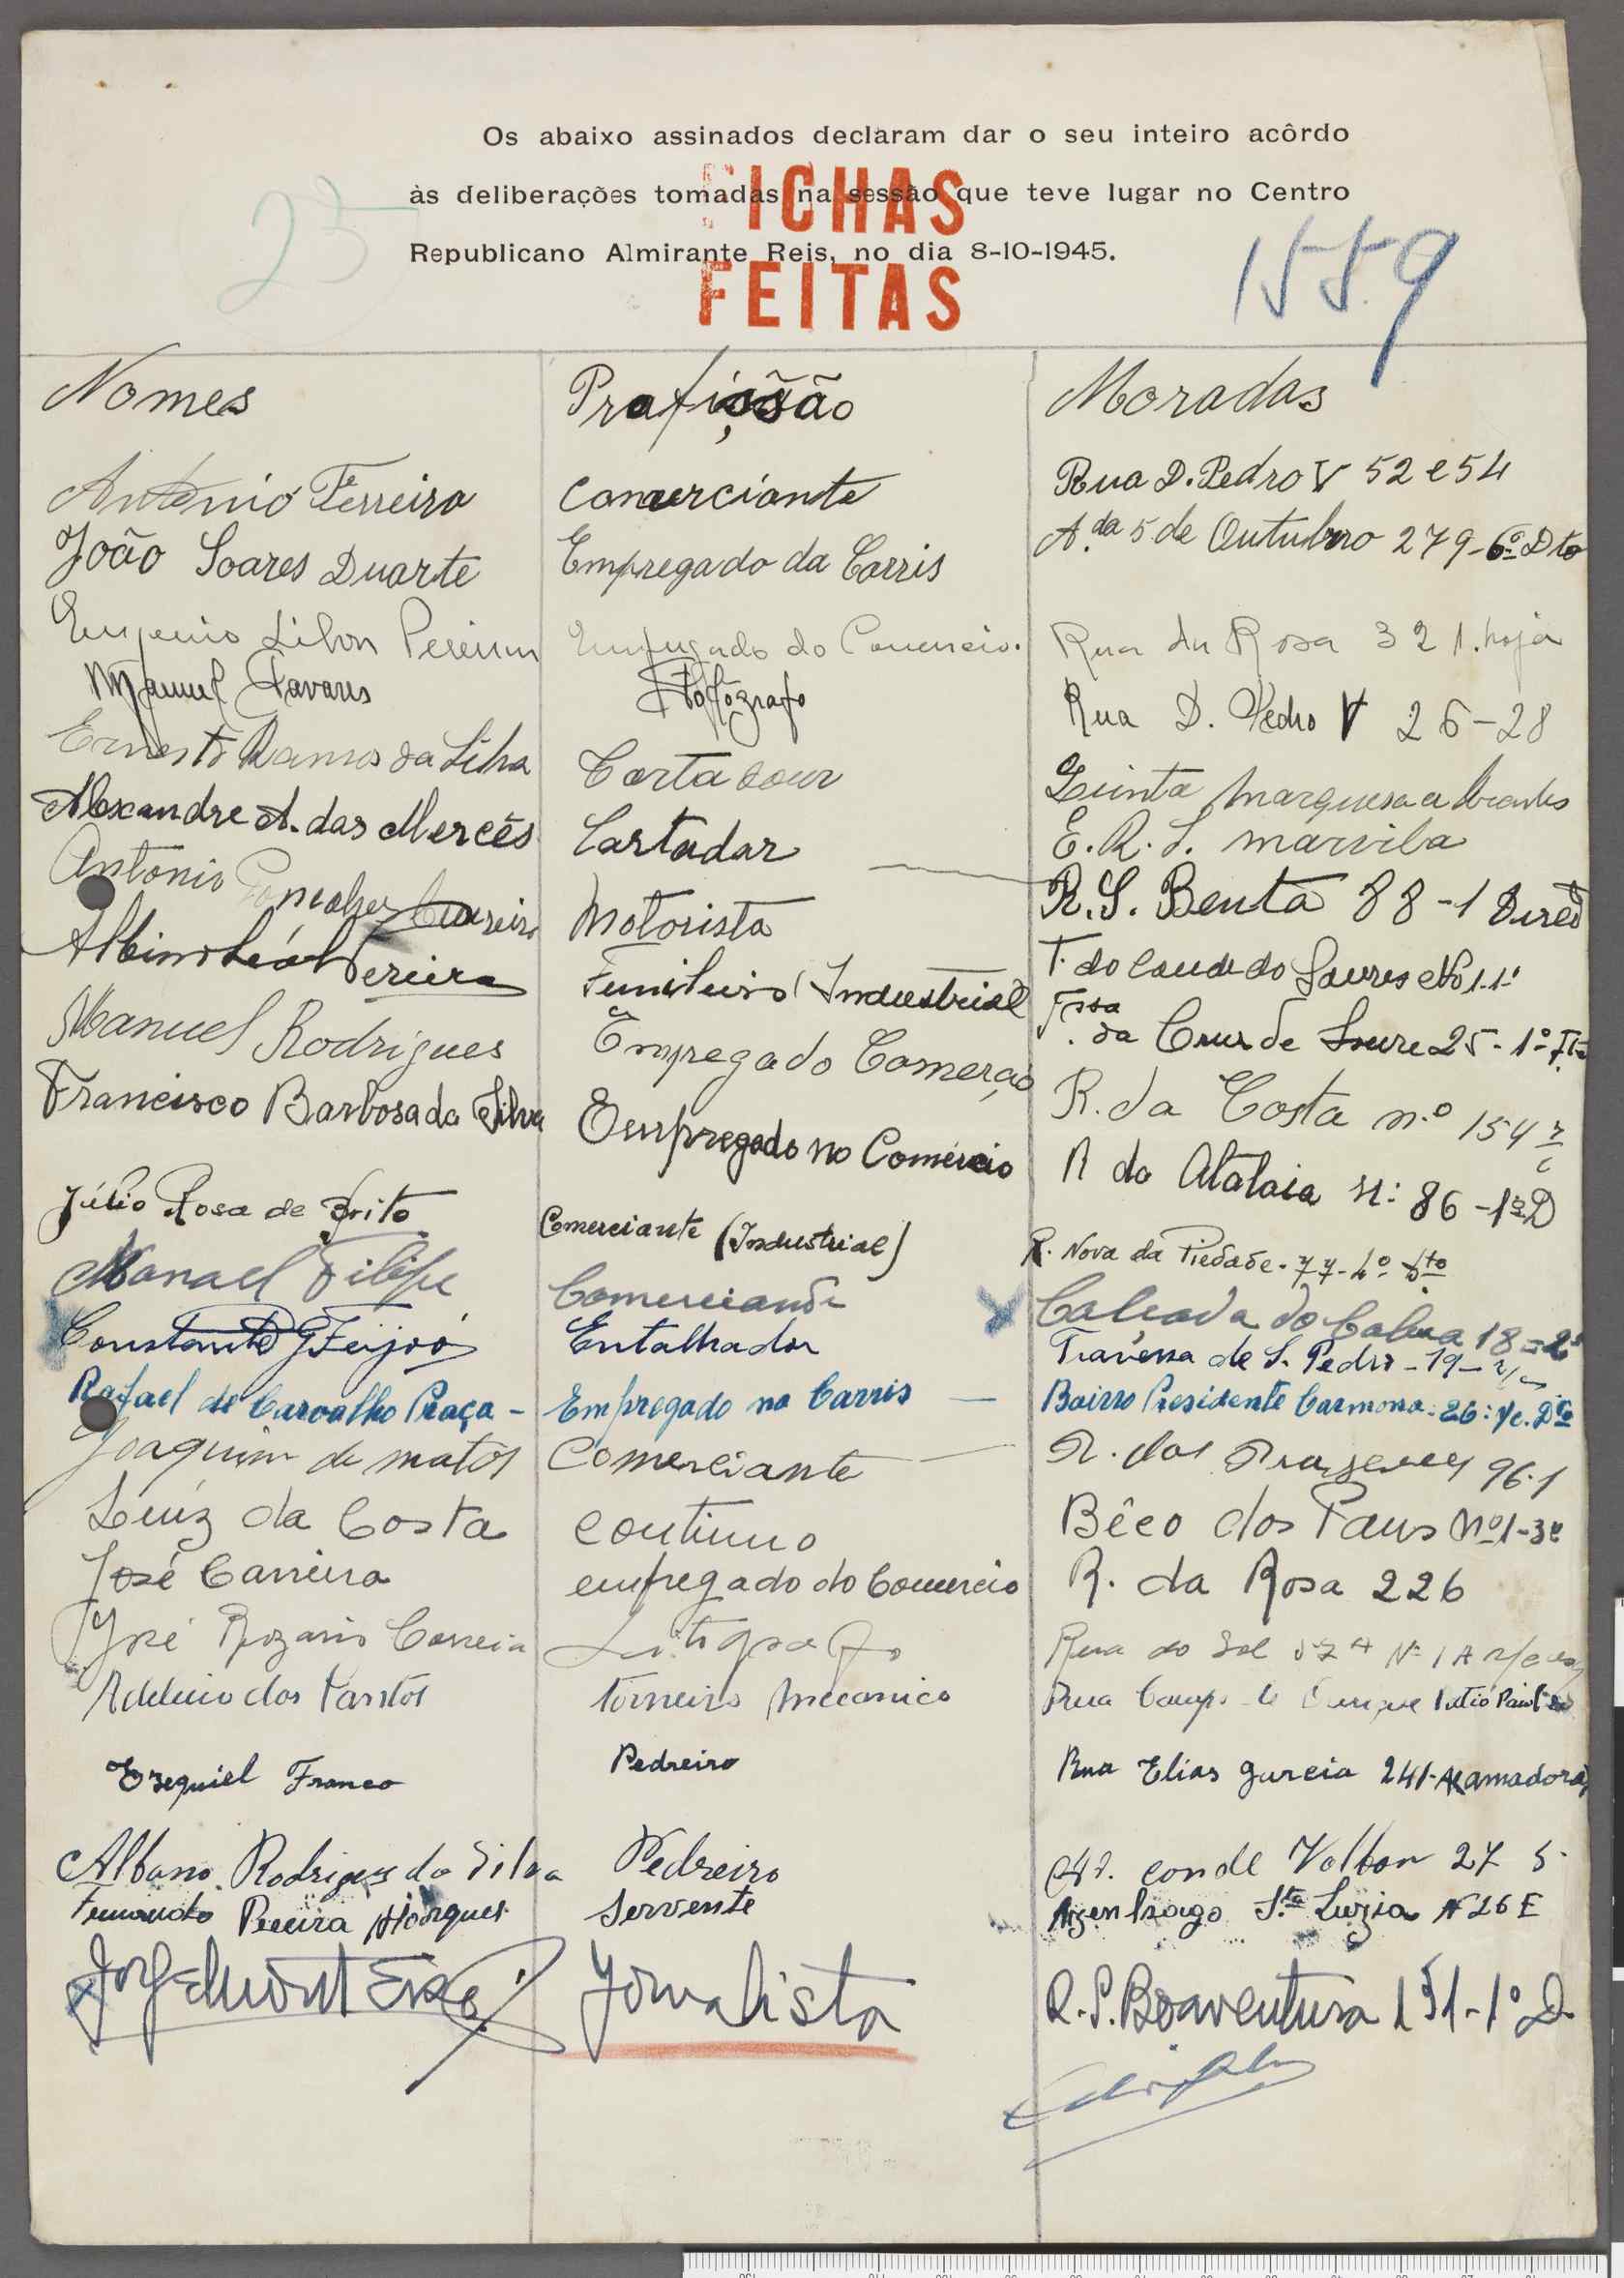 Os abaixo assinados declaram dar o seu inteiro acôrdo
às deliberações tomadas na sessão que teve lugar no Centro
Republicano Almirante Reis, no dia 8-10-1945.
FICHAS
FEITAS
25
1559
Nomes Profissão Moradas
António Ferreira Comerciante Rua D. Pedro V 52 e 54
João Soares Duarte Empregado da Carris A.da 5 de Outubro 279-6º Dto
Eugenio Silva Pereira Empregado do Comercio. Rua da Rosa 321. loja
Manuel Tavares Fotógrafo Rua D. Pedro V 26-28
Ernesto Ramos da Silva Cortador Quinta Marquesa Abrantes
Alexandre A. das Mercês Cortador E. R. L. marvila
Antonio Gonçalves Motorista R. S. Bento 88-1
Albino Leál Pereira Funileiro (Industrial T. do Conde do Soure No 1-1º
Manuel Rodrigues Empregado Comerçio T.ssa da Cruz de Soure 25-1º
Francisco Barbosa da Silva Empregado no Comércio R. da Costa n.º 154 r/c
R da Atalaia n: 86-1º D
Júlio Rosa de Brito Comerciante (Industrial) R. Nova da Piedade-77-4º Dto
Manael Filipe Comerciante Calçada do 18-2º
Constante G Feijoó Entalhador Travessa de S. Pedro-19-r/c
Rafael de Carvalho Praça - Empregado na Carris - Bairro Presidente Carmona: 26: r/c. Dto
Joaquim de matos Comerciante R. dos Prazeres 96-1
Luiz da Costa Continuo Bêco dos Paus Nº1-3º
José Carreira empregado do Comercio R. da Rosa 226
José Rozario Correia Litografo Rua do Sol
Adelino dos Santos torneiro mecanico Rua Campo de Ourique
Ezequiel Franco Pedreiro Rua Elias Garcia 241- amadora
Albano Rodrigues da Silva Pedreiro Av. conde Valbom 27 5
Fernando Pereira Marques Servente Sta Luzia N 26 E
Jornalista R. S. Boaventura 151-1º D.